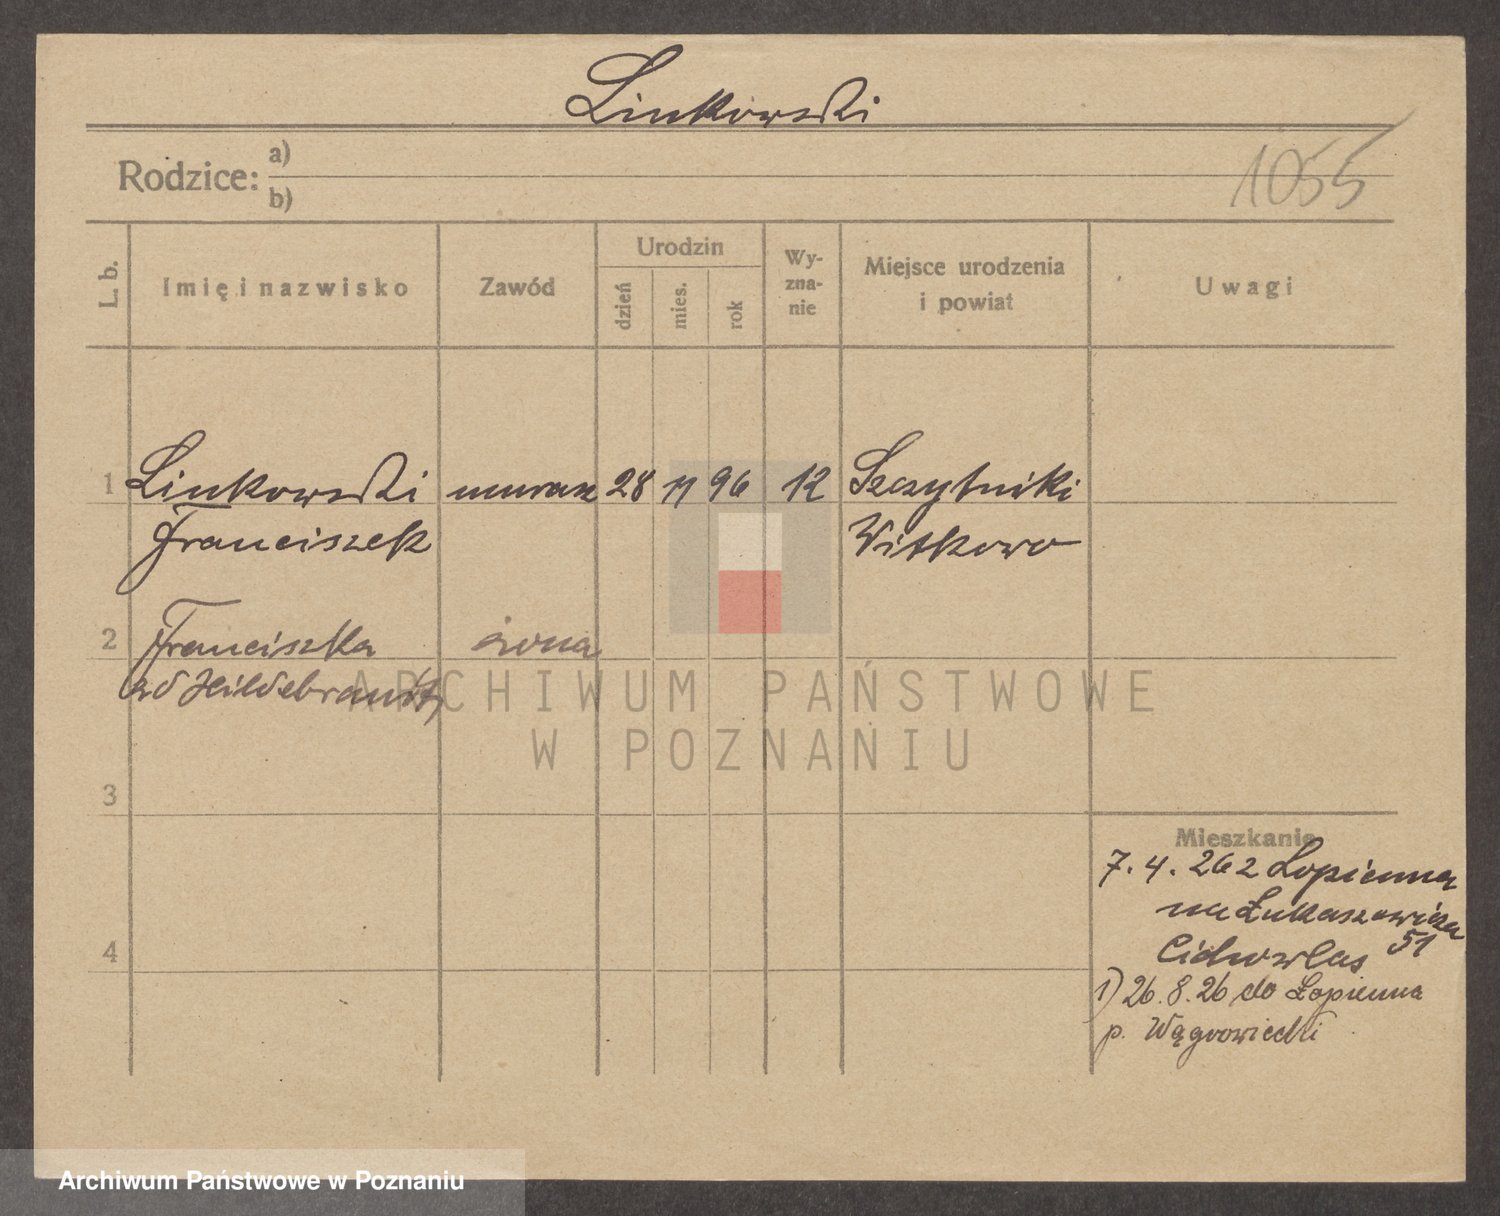 Linkowski
Rodzice: a)
b)
1055
L. b.
Imię i nazwisko
Zawód
Urodzin
dzień
mies.
rok
Wy-
zna-
nie
Miejsce urodzenia
i powiat
Uwagi
1 Linkowski murarz 28 11 96 12 Szczytniki
Franciszek Witkowo
2 Franciszka żona
zd Hildebrandt
3
4
Mieszkanie
7. 4. 262 Łopienna
na Łukaszewicza
51
1) 26. 8. 26 do Łopienna
p. Wągrowiecki
ARCHIWUM PAŃSTWOWE
W POZNANIU
Archiwum Państwowe w Poznaniu